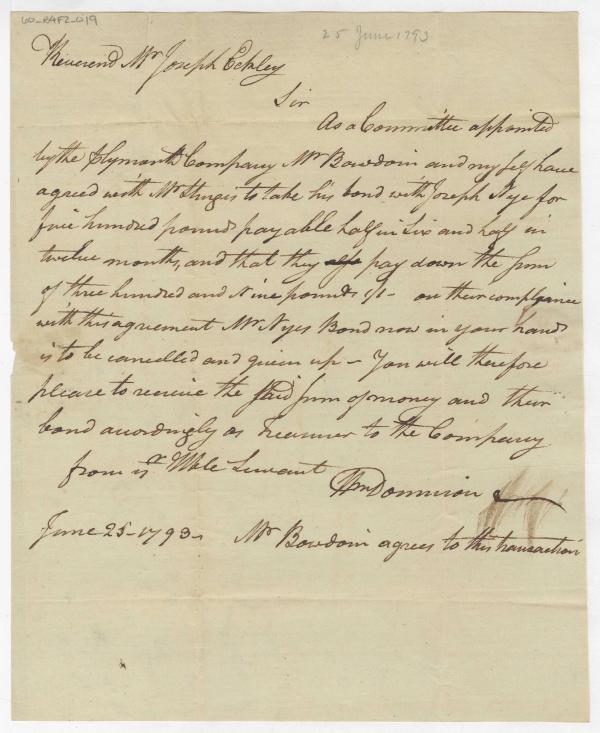 60-RAF2-019
25 June 1793
Reverend Mr Joseph Eckley
Sir
As a Committee appointed
by the Plymouth Company Mr Bowdoin and my self have
agreed with Mr Sturgis to take his bond with Joseph Nye for
five hundred pounds payable half in Six and half in
twelve months, and that they also pay down the sum
of three hundred and Nine pounds 1/- on their complyance
with this agreement Mr Nyes Bond now in your hands
is to be cancelled and given up - You will therefore
please to receive the said sum of money and their
bond accordingly as Treasurer to the Company
from yr Hble Servant
Wm
June 25 - 1793 - Mr Bowdoin agrees to this transaction